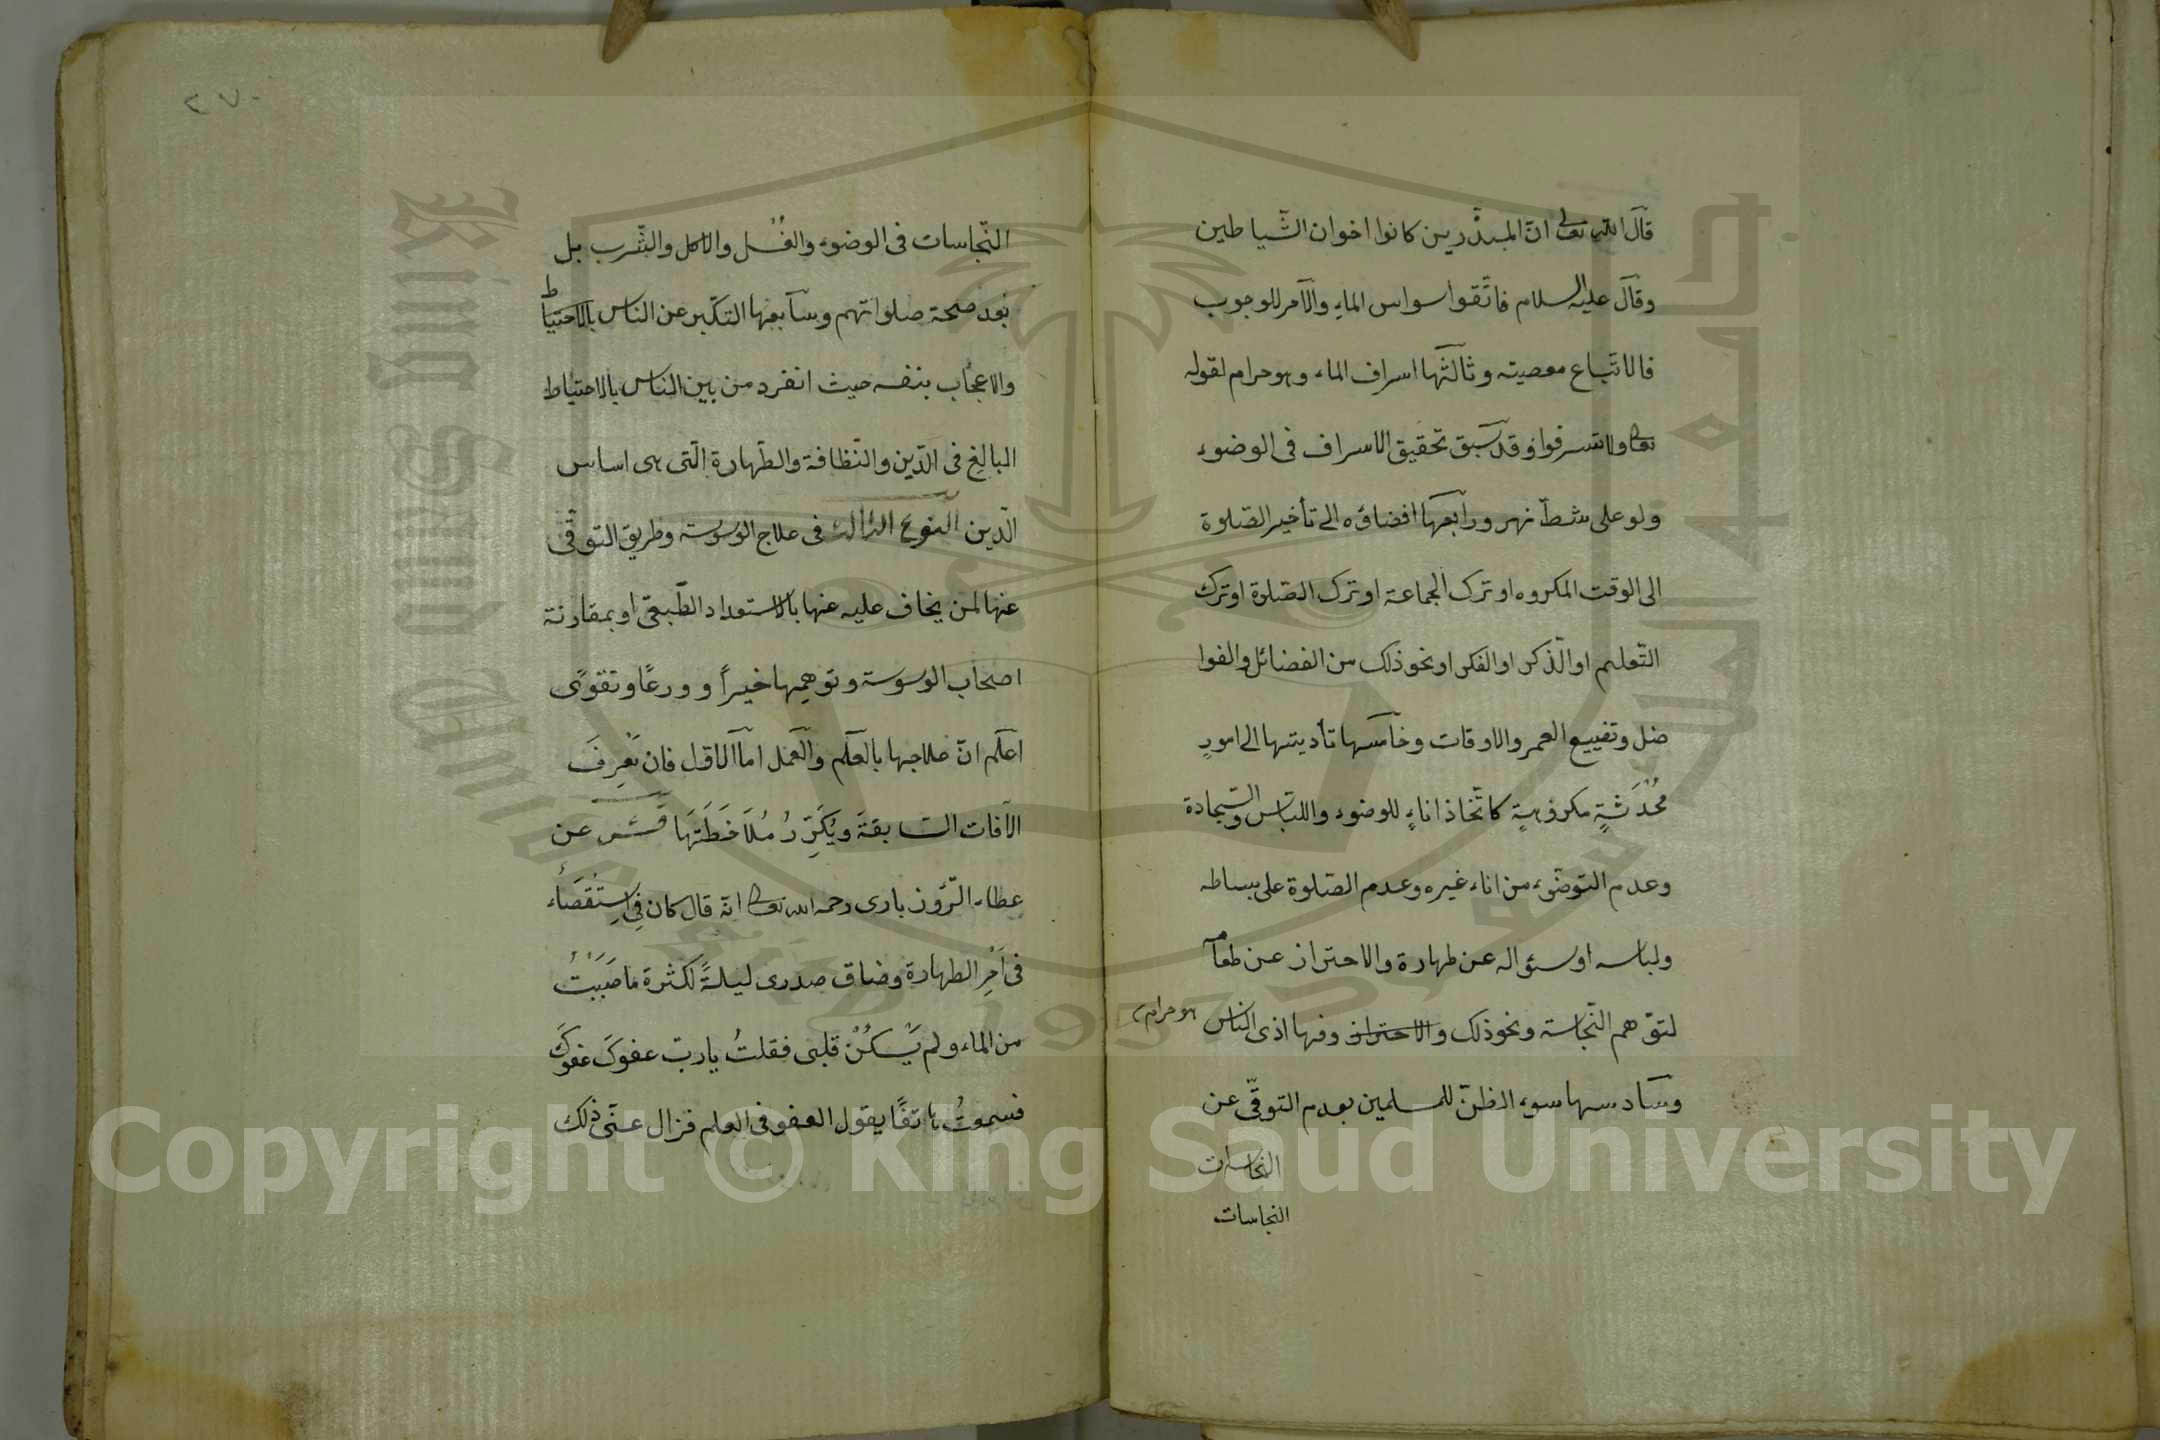 قال الله تعالى ان المبذرين كانوا اخوان الشياطين
وقال عليه السلام فاتقوا سواس الماء والامر للوجوب
فالاتباع معصيته وثالثها اسراف الماء وهو حرام لقوله
تعالى ولا تسرفوا وقد سبق تحقيق الاسراف فى الوضوء
ولو على شط نهر ورابعها افضاؤه الى تأخير الصلوة
الى الوقت المكروه او ترك الجماعة او ترك الصلوة او ترك
التعليم او الذكر او الفكر او نحو ذلك من الفضائل والفوا
ضل وتضييع العمر والاوقات وخامسها تأديتها الى امورٍ
مُحْدَثَةٍ مكروهةٍ كاتخاذ اناءٍ للوضوء واللباس والسجادة
وعدم التوضوء من اناء غيره وعدم الصلوة على بساطه
ولباسه او سئواله عن طهارة والاحتراز عن طعامه
لتوهم النجاسة ونحو ذلك والاحتراز وفيها اذى الناس هو حرام
وسادسها سوء الظن للمسلمين بعدم التوقى عن
النجاسات
النجاسات
٢٧٠
النجاسات فى الوضوء والغُسل والاكل والشرب بل
بعد صحة صلواتهم وسابعها التكبر عن الناس بالاحتياط
والاعجاب بنفسه حيث انفرد من بين الناس بالاحتياط
البالغ فى الدين والنظافة والطهارة التى هى اساس
الدين النوع الثالث فى علاج الوسوسة وطريق التوقى
عنها لمن يخاف عليه عنها بالاستعداد الطبعى او بمقارنة
اصحاب الوسوسة وتوهمها خيراً وورعًا وتقوًى
اعلم ان علاجها بالعلم والعمل اما الاول فان يَعْرِفَ
الآفات السابقةَ ويُكَرِّرُ مُلاَحَظَتَهَا عن
عطاء الرُوذبارى رحمه الله تعالى انه قال كان فِى اِسْتِقْصَاء
فى اَمْرِ الطهارة وضاق صدرى ليلةً لكثرة ما صَبَبْتُ
من الماء ولم يَسْكُنْ قلبى فقلتُ يا رب عفوكَ عفوكَ
فسمعتُ هاتفًا يقول العفو فى العلم فزال عنى ذلك
King Saud University
1957
Copyright © King Saud University